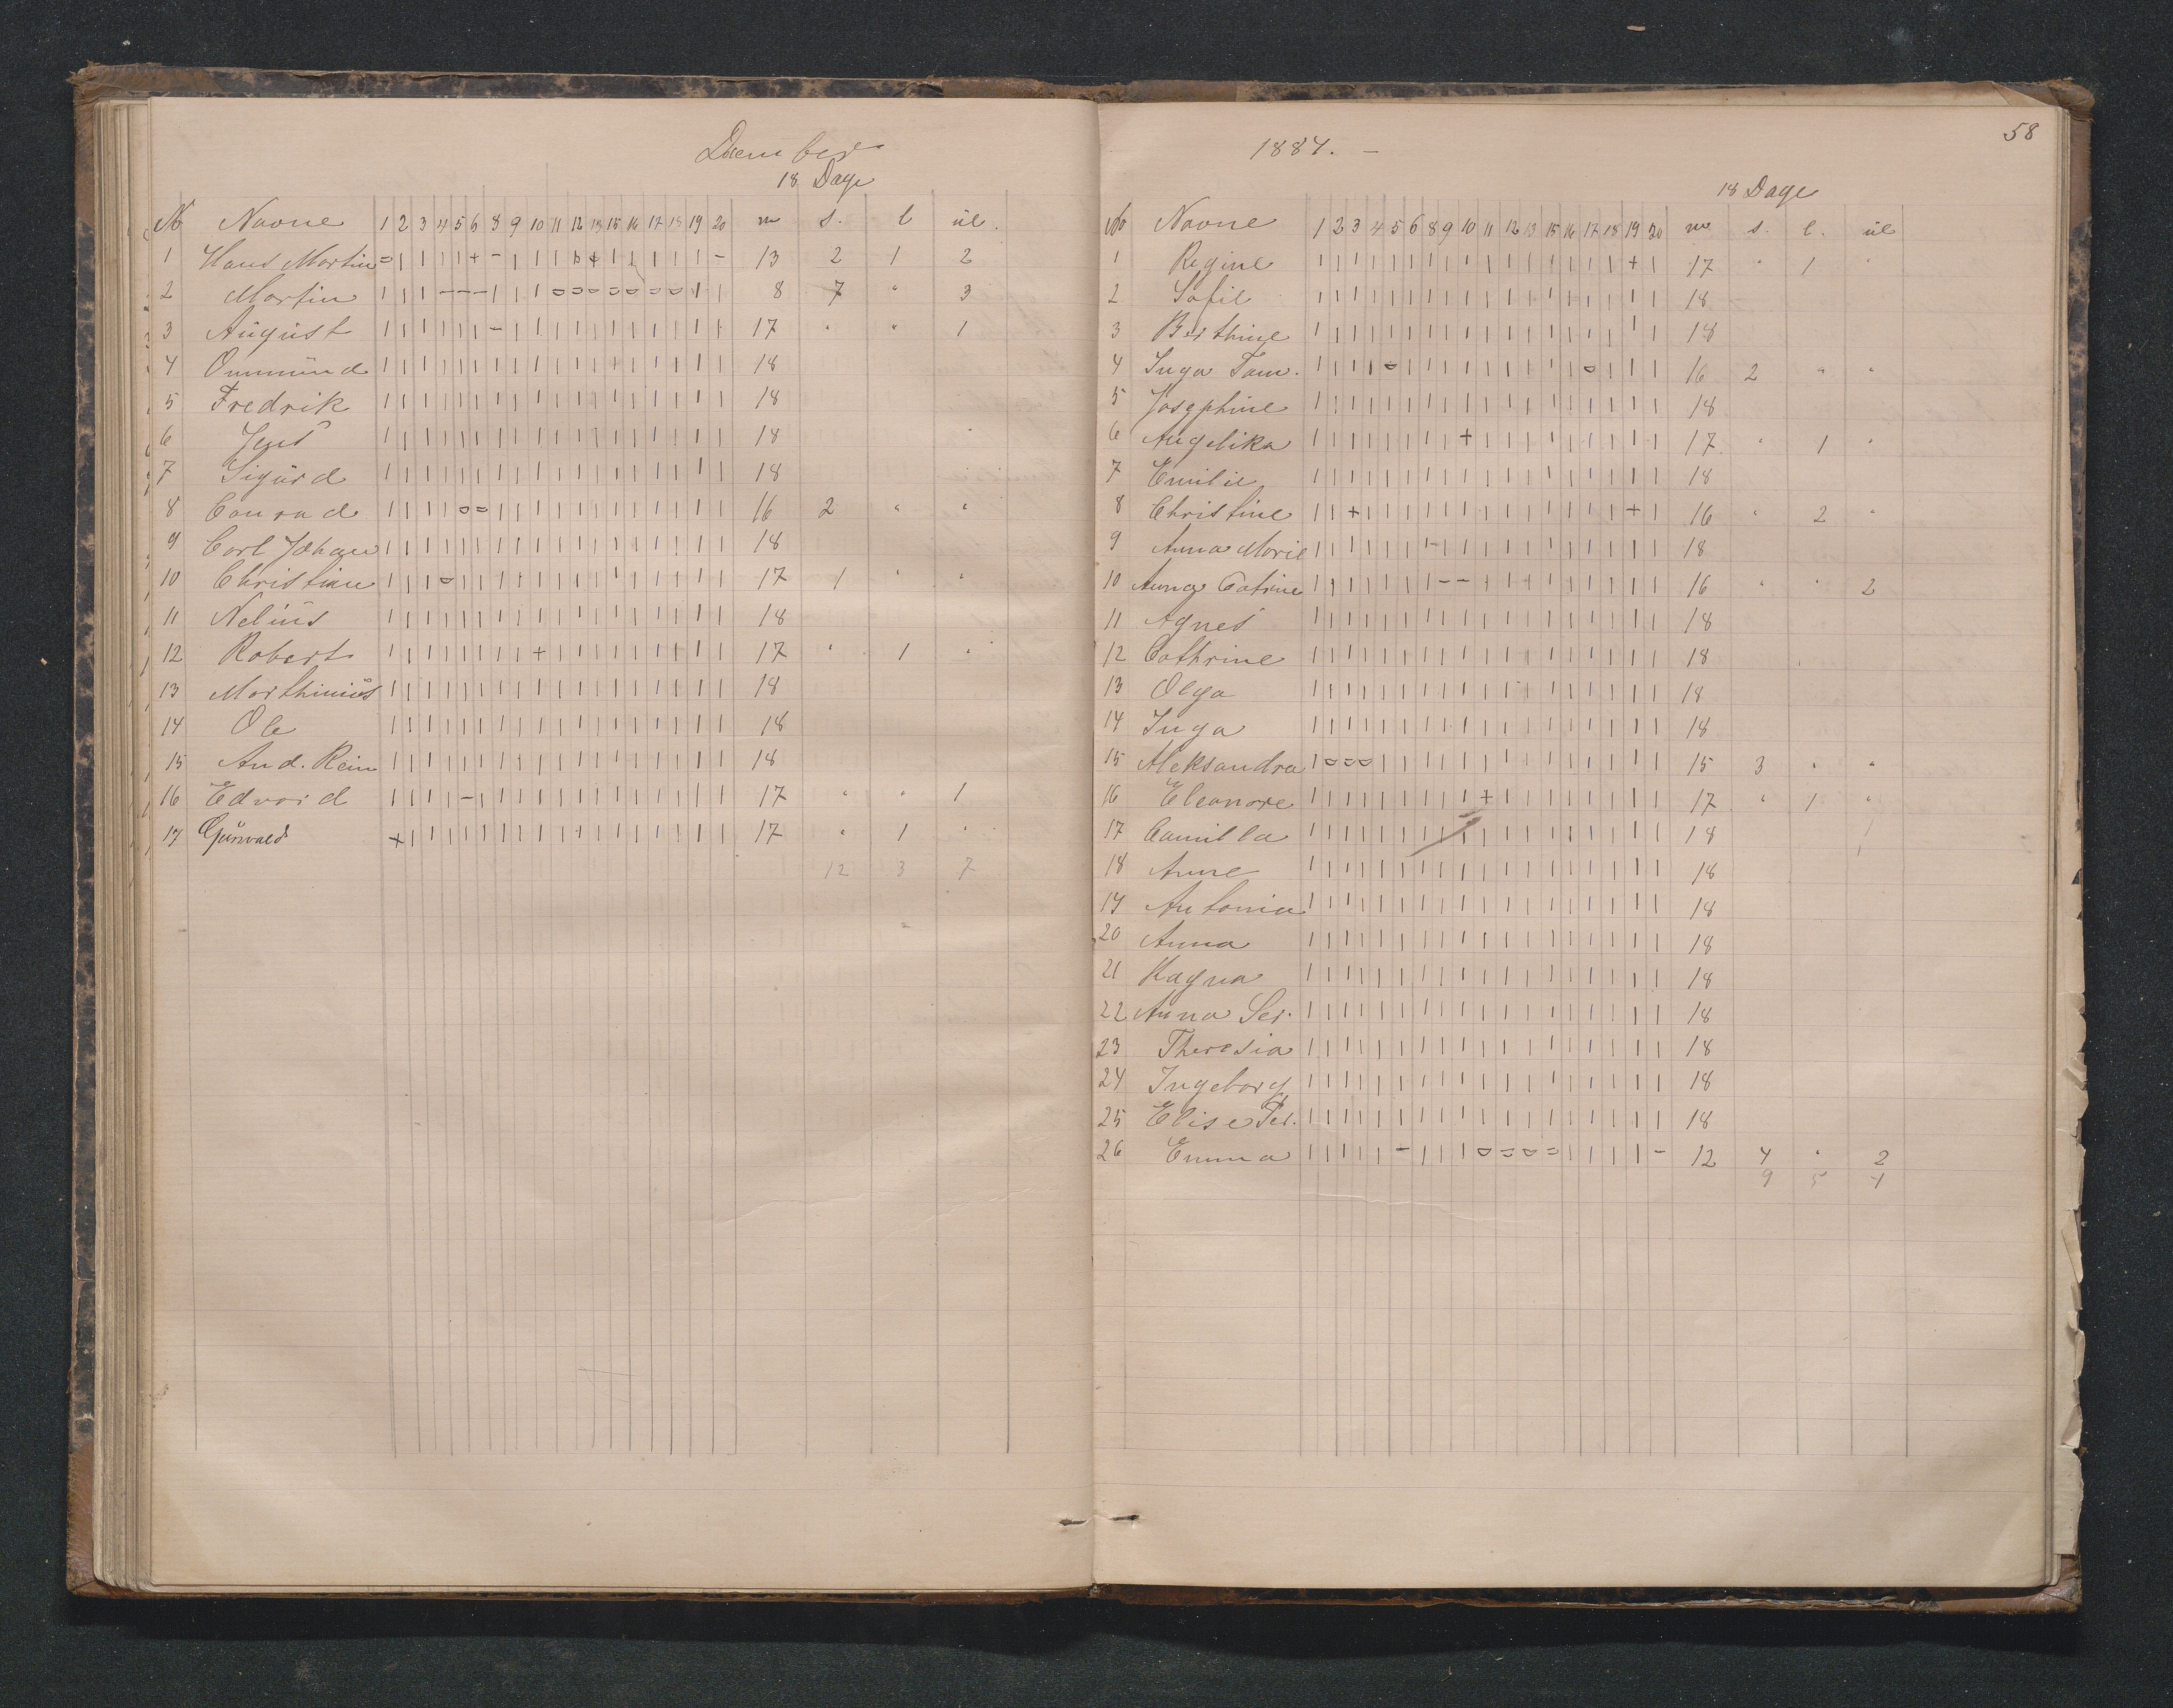 December
18 Dage
No Navne 1 2 3 4 5 6 8 9 10 11 12 13 15 16 17 18 19 20 m s. l ul.
1 Hans Martin = | | | | + - | | | | + | | | | - 13 2 1 2
2 Martin | | | - - - | | | o o o o o o o | | 8 7 " 3
3 August | | | | | | - | | | | | | | | | | | 17 " " 1
4 Ommund | | | | | | | | | | | | | | | | | | 18
5 Fredrik | | | | | | | | | | | | | | | | | | 18
6 Jens | | | | | | | | | | | | | | | | | | 18
7 Sigurd | | | | | | | | | | | | | | | | | | 18
8 Conrad | | | | o o | | | | | | | | | | | | 16 2 " "
9 Carl Johan | | | | | | | | | | | | | | | | | | 18
10 Christian | | | o | | | | | | | | | | | | | | 17 1 " "
11 Nelius | | | | | | | | | | | | | | | | | | 18
12 Robert | | | | | | | | + | | | | | | | | | 17 " 1 "
13 Marthinius | | | | | | | | | | | | | | | | | | 18
14 Ole | | | | | | | | | | | | | | | | | | 18
15 And. Rein | | | | | | | | | | | | | | | | | | 18
16 Edvard | | | | - | | | | | | | | | | | | | 17 " " 1
17 Gunvald + | | | | | | | | | | | | | | | | | 17 " 1 "
12 3 7
58
1884. -
18 Dage
No Navne 1 2 3 4 5 6 8 9 10 11 12 13 15 16 17 18 19 20 m s. l. ul
1 Regine | | | | | | | | | | | | | | | | + | 17 " 1 "
2 Sofie | | | | | | | | | | | | | | | | | | 18
3 Berthine | | | | | | | | | | | | | | | | | | 18
4 Inga Tom. | | | | o | | | | | | | | | o | | | 16 2 " "
5 Josephine | | | | | | | | | | | | | | | | | | 18
6 Angelika | | | | | | | | + | | | | | | | | | 17 " 1 "
7 Emilie | | | | | | | | | | | | | | | | | | 18
8 Christine | | + | | | | | | | | | | | | | + | 16 " 2 "
9 Anna Marie | | | | | | | | | | | | | | | | | | 18
10 Anna Catrine | | | | | | - - | | | | | | | | | | 16 " " 2
11 Agnes | | | | | | | | | | | | | | | | | | 18
12 Cathrine | | | | | | | | | | | | | | | | | | 18
13 Olga | | | | | | | | | | | | | | | | | | 18
14 Inga | | | | | | | | | | | | | | | | | | 18
15 Aleksandra | o o o | | | | | | | | | | | | | | 15 3 " "
16 Eleanore | | | | | | | | | + | | | | | | | | 17 " 1 "
17 Camilla | | | | | | | | | | | | | | | | | | 18
18 Anne | | | | | | | | | | | | | | | | | | 18
19 Antonia | | | | | | | | | | | | | | | | | | 18
20 Anna | | | | | | | | | | | | | | | | | | 18
21 Ragna | | | | | | | | | | | | | | | | | | 18
22 Anna Ser. | | | | | | | | | | | | | | | | | | 18
23 Theresia | | | | | | | | | | | | | | | | | | 18
24 Ingeborg | | | | | | | | | | | | | | | | | | 18
25 Elise Pet. | | | | | | | | | | | | | | | | | | 18
26 Emma | | | | | - | | | o o o o | | | | - 12 4 " 2
9 5 4